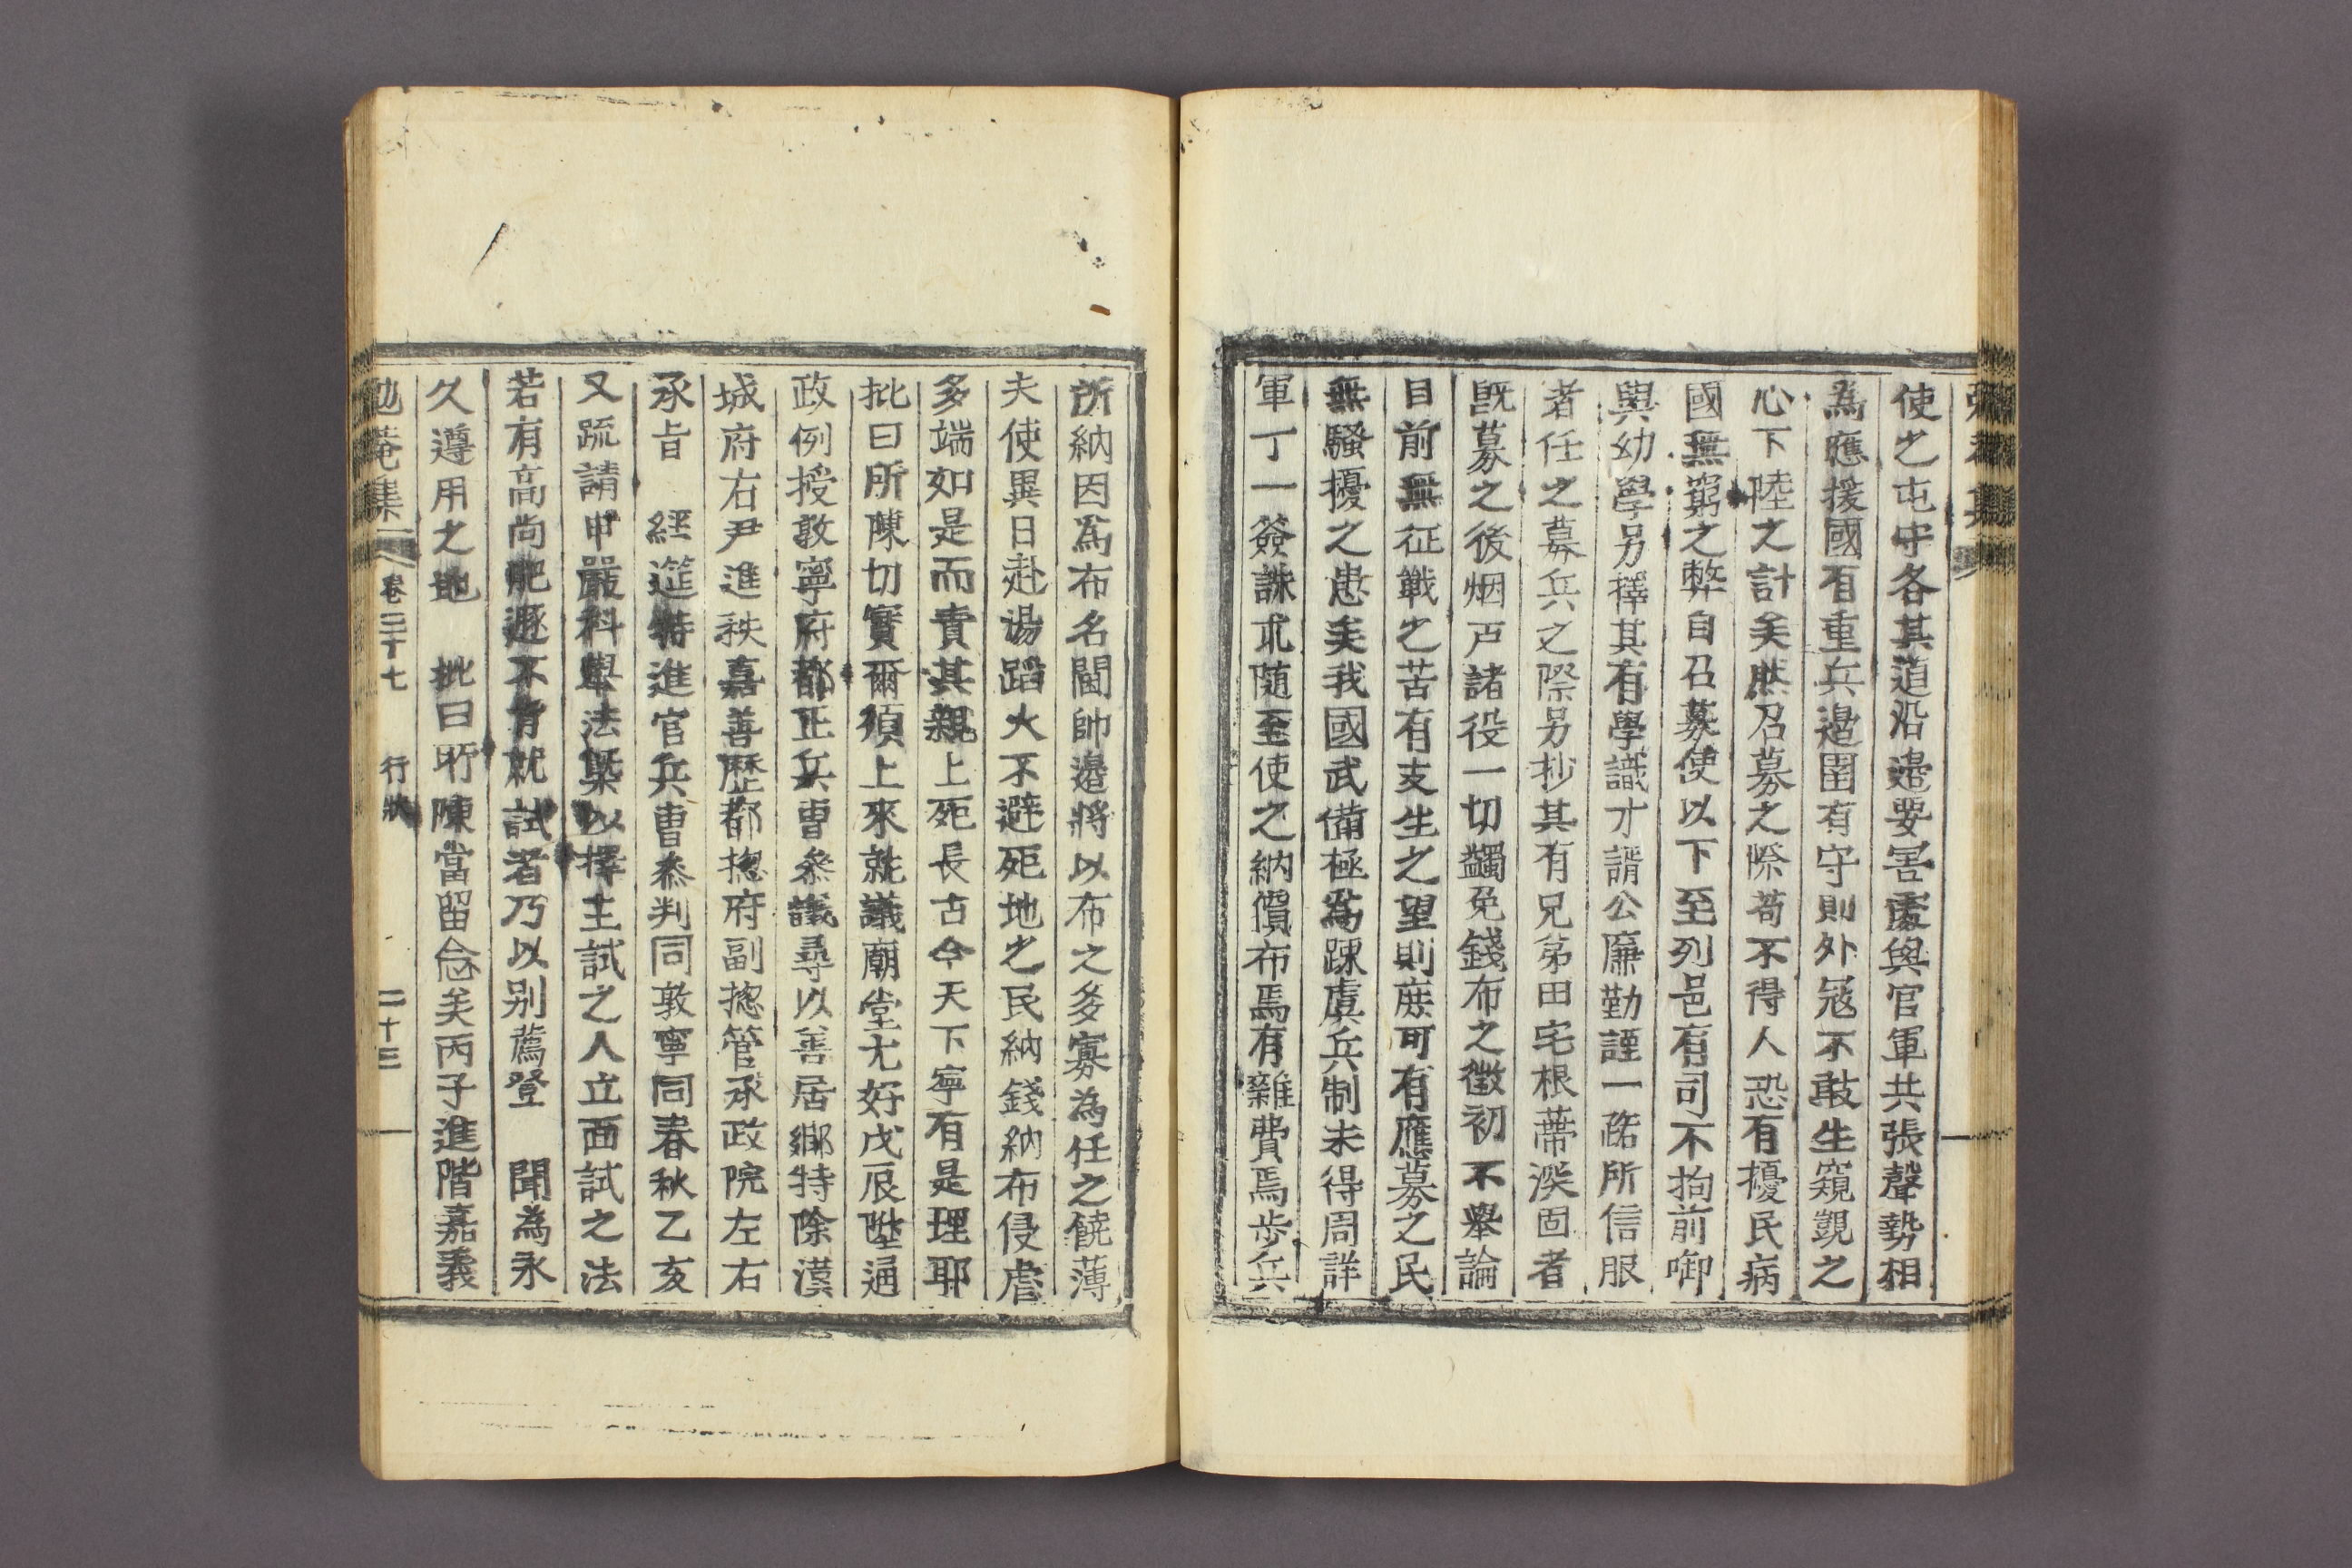 使之屯守各其道沿邊要害處與官軍共張聲勢相
為應援國有重兵邊圉有守則外寇不敢生窺覬之
心下陸之計矣然召募之際苟不得人恐有擾民病
國無窮之弊自召募使以下至列邑有司不拘前啣
與幼學另擇其有學識才諝公廉勤謹一路所信服
者任之募兵之際另抄其有兄弟田宅根蔕深固者
旣募之後烟戶諸役一切蠲免錢布之徵初不舉論
目前無征戰之苦有支生之望則庶可有應募之民
無騷擾之患矣我國武備極為踈虞兵制未得周詳
軍丁一簽誅求隨至使之納價布焉有雜費焉步兵
所納因為布名閫帥邊將以布之多寡為任之饒薄
夫使異日赴湯蹈火不避死地之民納錢納布侵虐
多端如是而責其親上死長古今天下寧有是理耶
批曰所陳切實爾須上來就議廟堂尤好戊辰陞通
政例授敦寧府都正兵曹參議尋以善居鄉特除漢
城府右尹進秩嘉善歷都摠府副摠管承政院左右
承旨　經筵特進官兵曹叅判同敦寧同春秋乙亥
又疏請申嚴科舉法槩以擇主試之人立面試之法
若有高尚肥遯不肯就試者乃以別薦登　聞為永
久遵用之地　批曰所陳當留念矣丙子進階嘉義
勉菴集　卷三十七　行狀　二十三